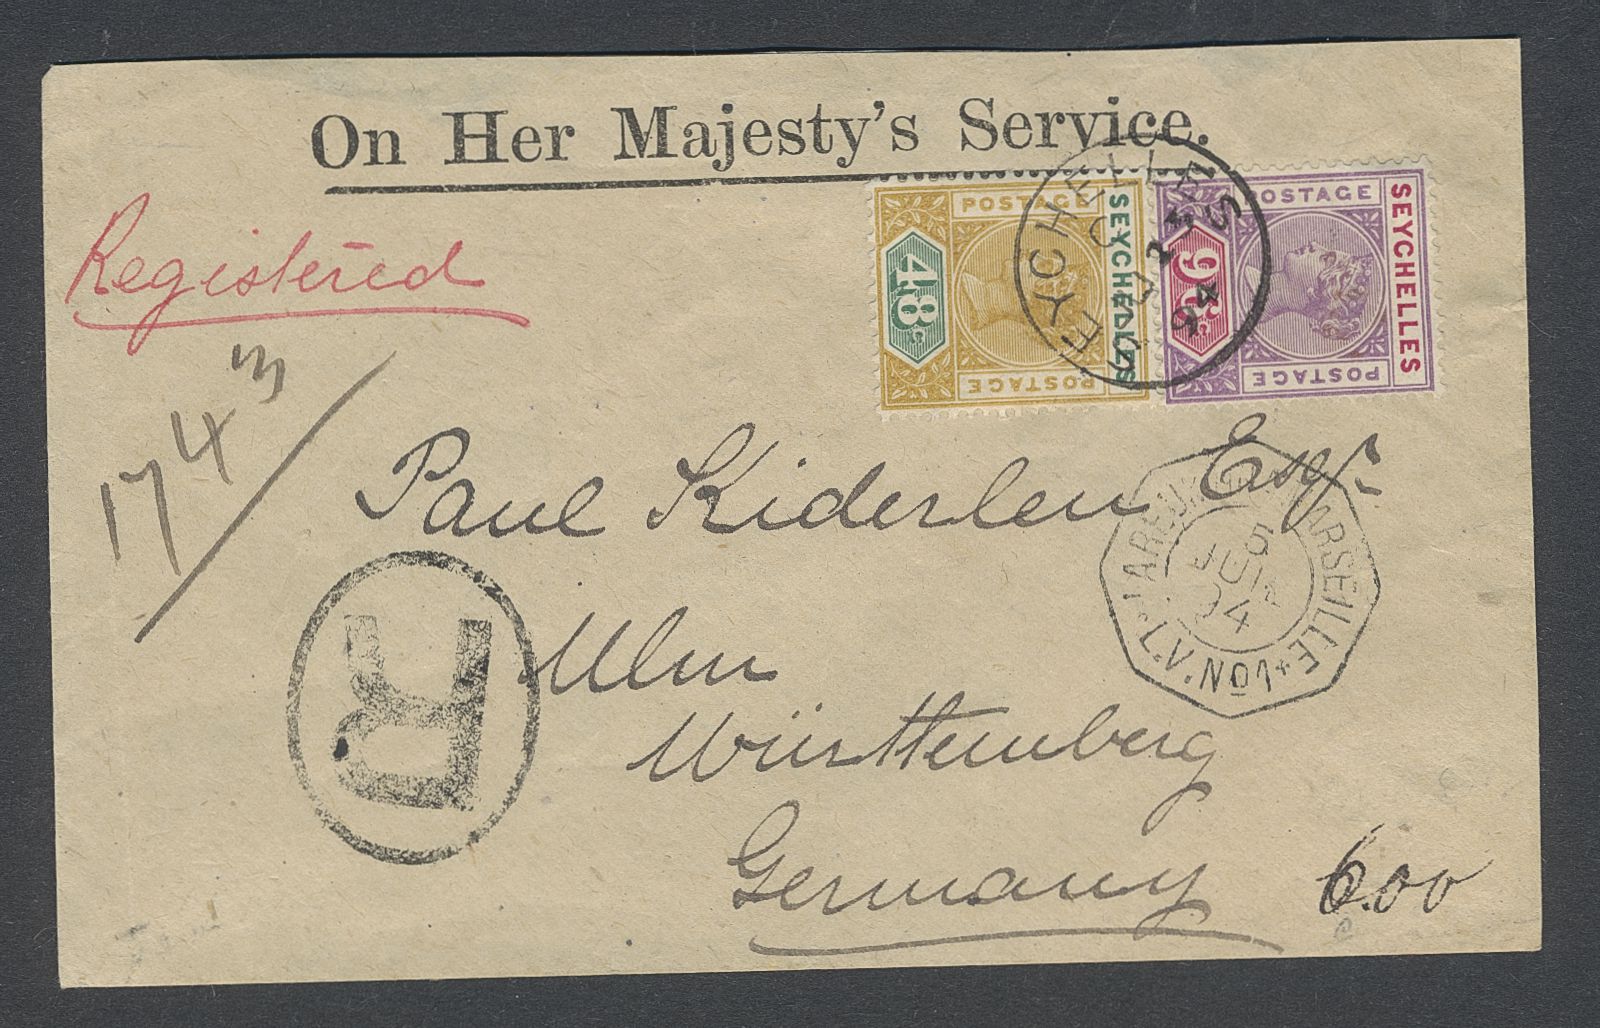 On Her Majesty's Service.
Registered
174 3
POSTAGE
SEYCHELLES
48c
POSTAGE
POSTAGE
SEYCHELLES
96c
POSTAGE
SEYCHELLES
23
94
Paul Kiderlen Esqr
MARSEILLE
5
JUIN
94
L.V. No 1
R
Ulm
Württemberg
Germany
6.00